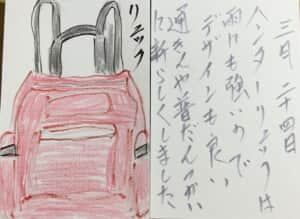 三月二十四日
ハンターリュックは
雨にも強いので
デザインも良い
通きんや普だんづかい
に新らしくしました
リュック